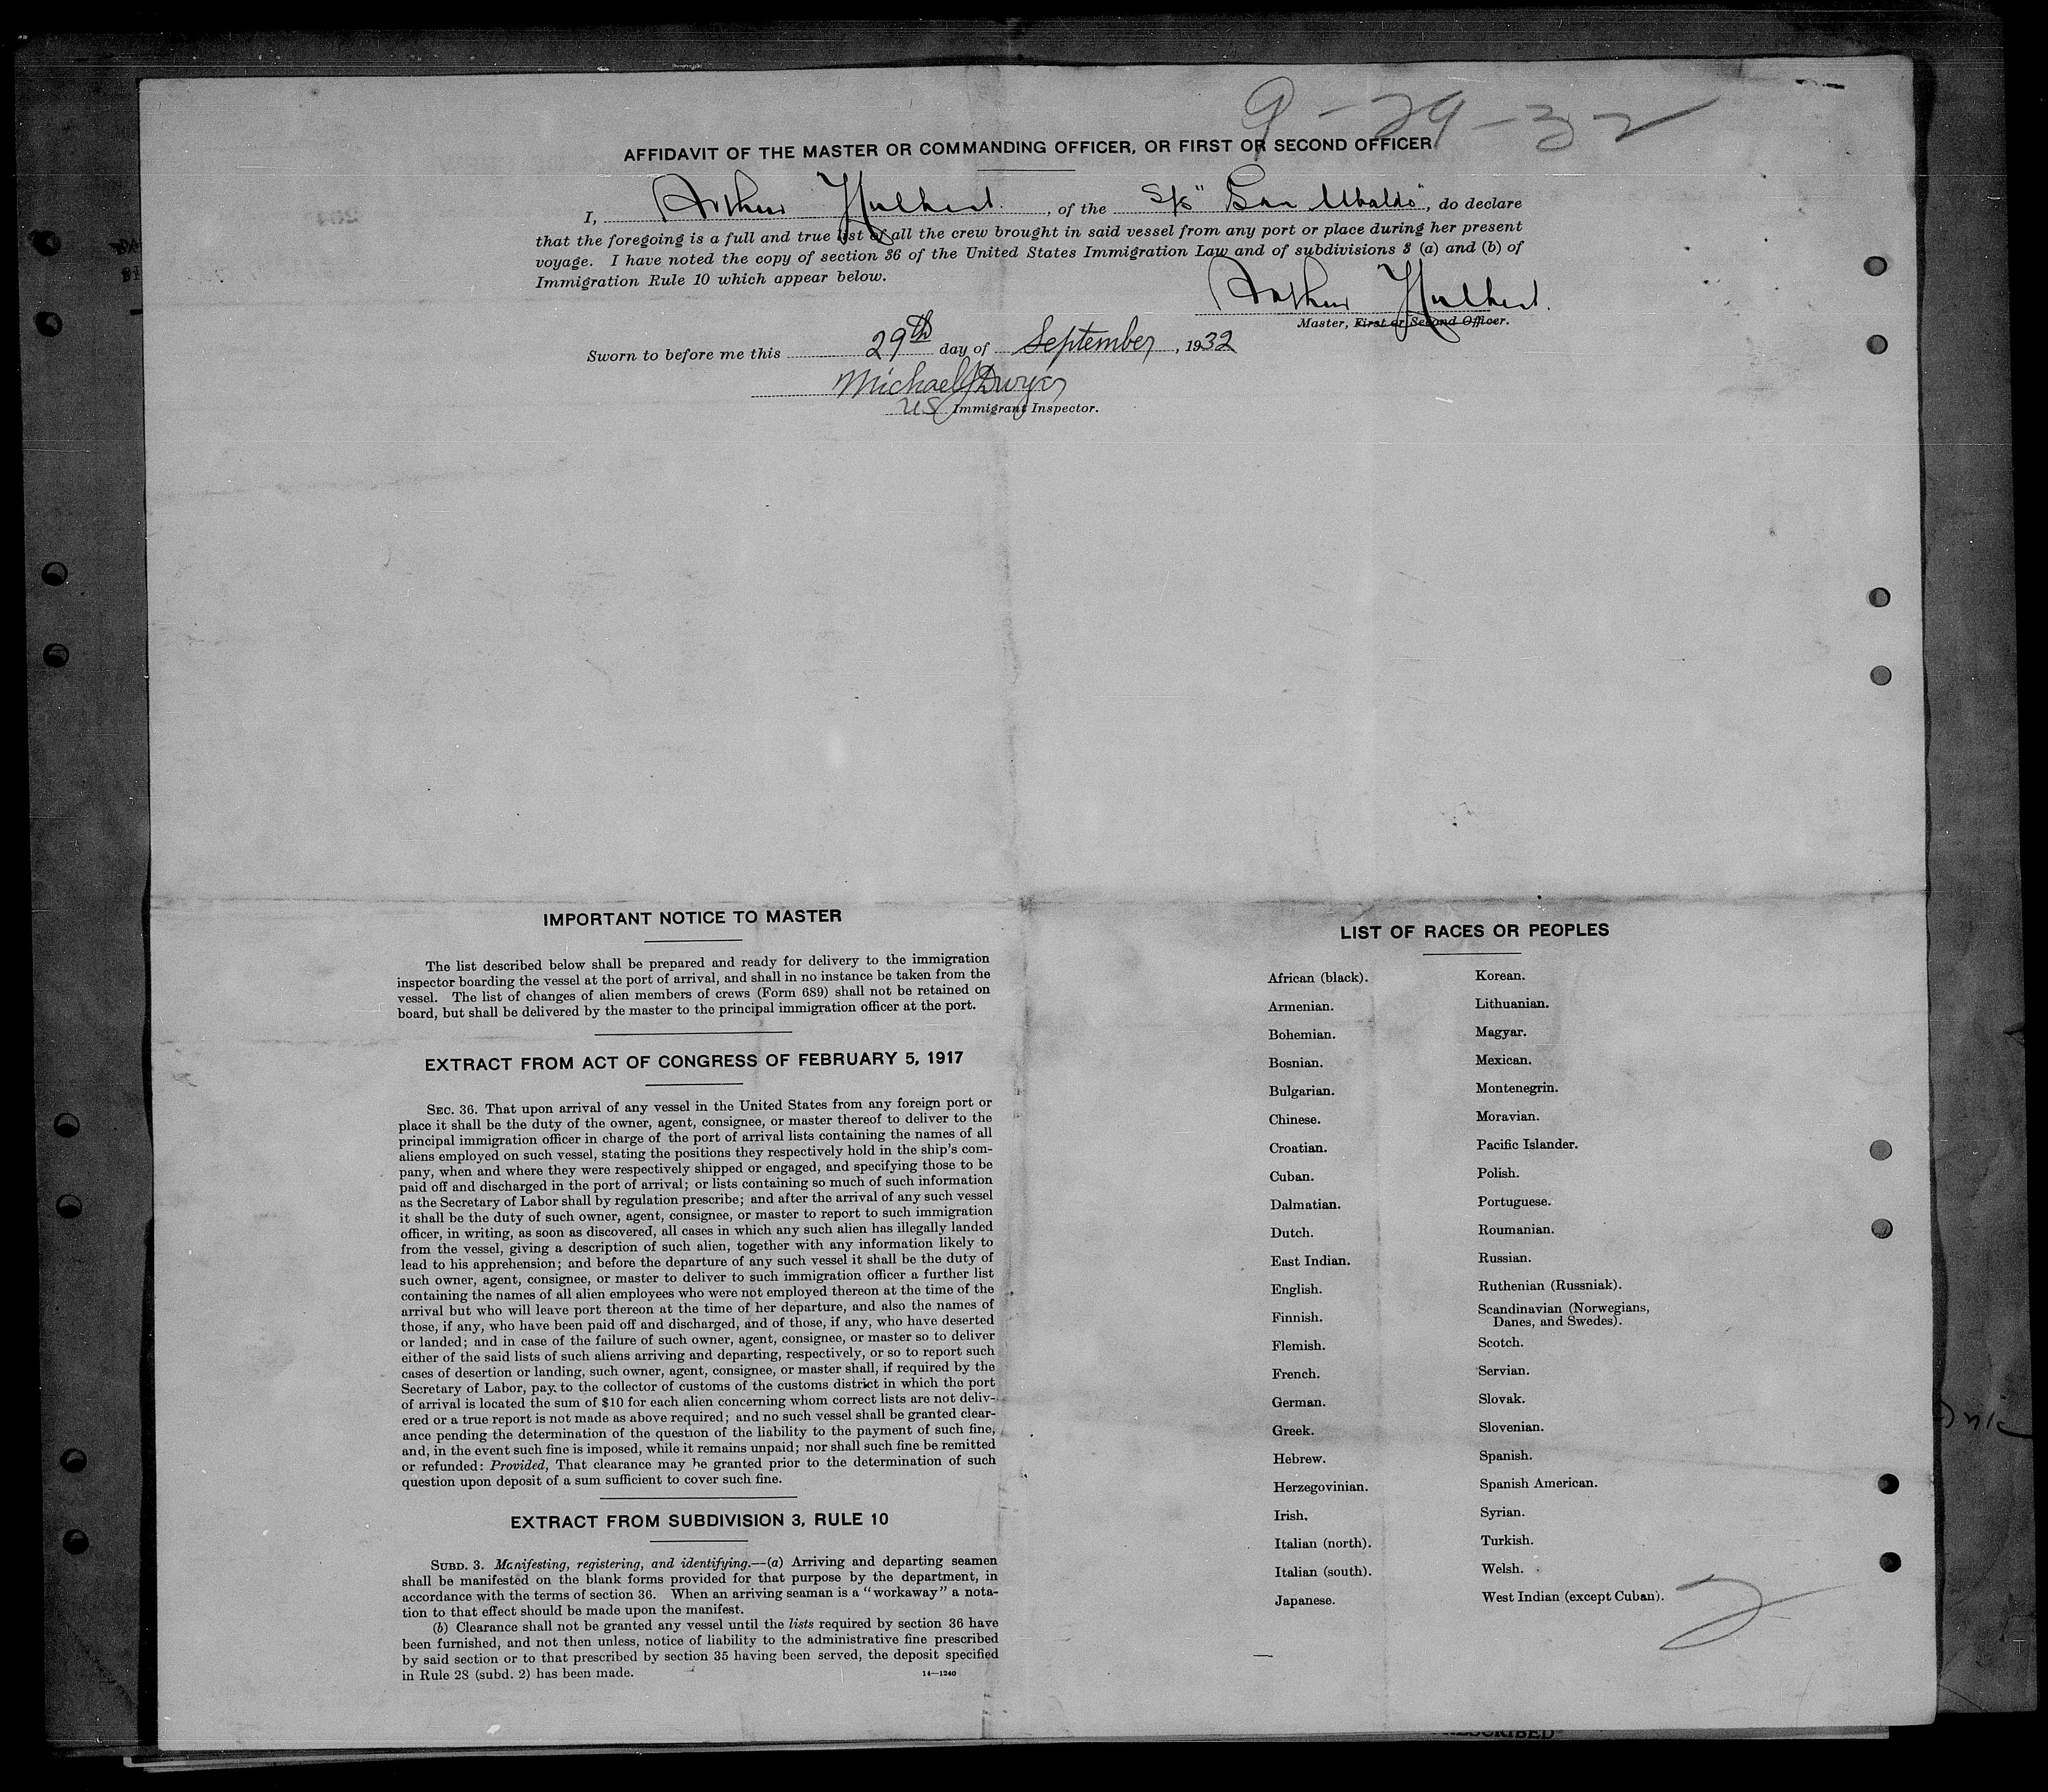 9-29-32
AFFIDAVIT OF THE MASTER OR COMMANDING OFFICER, OR FIRST OR SECOND OFFICER
I, Arthur Hulbert, of the S/S "San Ubaldo", do declare
that the foregoing is a full and true list of all the crew brought in said vessel from any port or place during her present
voyage. I have noted the copy of section 36 of the United States Immigration Law and of subdivisions 3 (a) and (b) of
Immigration Rule 10 which appear below.
Arthur Hulbert.
Master, First or Second Officer.
Sworn to before me this 29th day of September, 1932
Michael J Dwyer
US Immigrant Inspector.
IMPORTANT NOTICE TO MASTER
The list described below shall be prepared and ready for delivery to the immigration
inspector boarding the vessel at the port of arrival, and shall in no instance be taken from the
vessel. The list of changes of alien members of crews (Form 689) shall not be retained on
board, but shall be delivered by the master to the principal immigration officer at the port.
EXTRACT FROM ACT OF CONGRESS OF FEBRUARY 5, 1917
SEC. 36. That upon arrival of any vessel in the United States from any foreign port or
place it shall be the duty of the owner, agent, consignee, or master thereof to deliver to the
principal immigration officer in charge of the port of arrival lists containing the names of all
aliens employed on such vessel, stating the positions they respectively hold in the ship's com-
pany, when and where they were respectively shipped or engaged, and specifying those to be
paid off and discharged in the port of arrival; or lists containing so much of such information
as the Secretary of Labor shall by regulation prescribe; and after the arrival of any such vessel
it shall be the duty of such owner, agent, consignee, or master to report to such immigration
officer, in writing, as soon as discovered, all cases in which any such alien has illegally landed
from the vessel, giving a description of such alien, together with any information likely to
lead to his apprehension; and before the departure of any such vessel it shall be the duty of
such owner, agent, consignee, or master to deliver to such immigration officer a further list
containing the names of all alien employees who were not employed thereon at the time of the
arrival but who will leave port thereon at the time of her departure, and also the names of
those, if any, who have been paid off and discharged, and of those, if any, who have deserted
or landed; and in case of the failure of such owner, agent, consignee, or master so to deliver
either of the said lists of such aliens arriving and departing, respectively, or so to report such
cases of desertion or landing, such owner, agent, consignee, or master shall, if required by the
Secretary of Labor, pay to the collector of customs of the customs district in which the port
of arrival is located the sum of $10 for each alien concerning whom correct lists are not deliv-
ered or a true report is not made as above required; and no such vessel shall be granted clear-
ance pending the determination of the question of the liability to the payment of such fine,
and, in the event such fine is imposed, while it remains unpaid; nor shall such fine be remitted
or refunded: Provided, That clearance may be granted prior to the determination of such
question upon deposit of a sum sufficient to cover such fine.
EXTRACT FROM SUBDIVISION 3, RULE 10
SUBD. 3. Manifesting, registering, and identifying.—(a) Arriving and departing seamen
shall be manifested on the blank forms provided for that purpose by the department, in
accordance with the terms of section 36. When an arriving seaman is a "workaway" a nota-
tion to that effect should be made upon the manifest.
(b) Clearance shall not be granted any vessel until the lists required by section 36 have
been furnished, and not then unless, notice of liability to the administrative fine prescribed
by said section or to that prescribed by section 35 having been served, the deposit specified
in Rule 28 (subd. 2) has been made.
14—1240
LIST OF RACES OR PEOPLES
African (black).
Armenian.
Bohemian.
Bosnian.
Bulgarian.
Chinese.
Croatian.
Cuban.
Dalmatian.
Dutch.
East Indian.
English.
Finnish.
Flemish.
French.
German.
Greek.
Hebrew.
Herzegovinian.
Irish.
Italian (north).
Italian (south).
Japanese.
Korean.
Lithuanian.
Magyar.
Mexican.
Montenegrin.
Moravian.
Pacific Islander.
Polish.
Portuguese.
Roumanian.
Russian.
Ruthenian (Russniak).
Scandinavian (Norwegians,
Danes, and Swedes).
Scotch.
Servian.
Slovak.
Slovenian.
Spanish.
Spanish American.
Syrian.
Turkish.
Welsh.
West Indian (except Cuban).
2